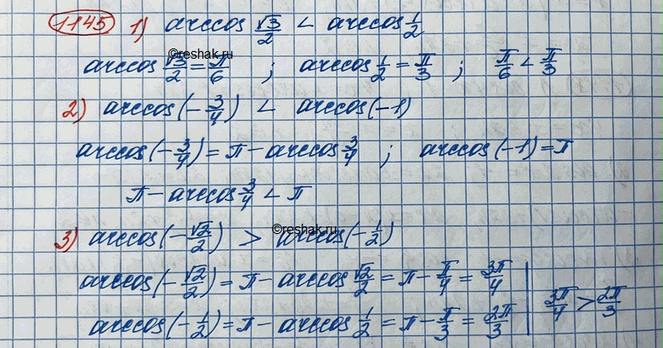 1145 1) arccos √3/2 < arccos 1/2
©reshak.ru
arccos √3/2 = π/6 ; arccos 1/2 = π/3 ; π/6 < π/3
2) arccos(-3/4) < arccos(-1)
arccos(-3/4) = π - arccos 3/4 ; arccos(-1) = π
π - arccos 3/4 < π
©reshak.ru
3) arccos(-√2/2) > arccos(-1/2)
arccos(-√2/2) = π - arccos √2/2 = π - π/4 = 3π/4 | 3π/4 > 2π/3
arccos(-1/2) = π - arccos 1/2 = π - π/3 = 2π/3